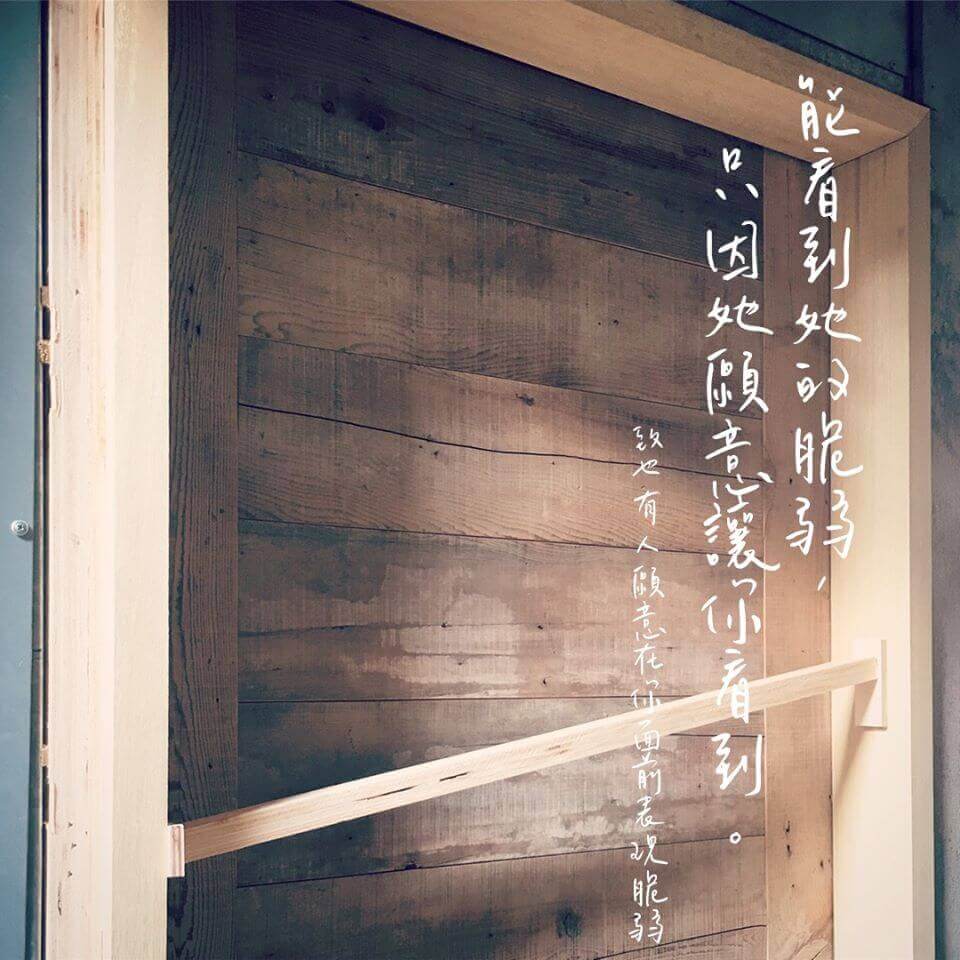 能看到她的脆弱，
只因她願意讓你看到。
致也有人願意在你面前表現脆弱